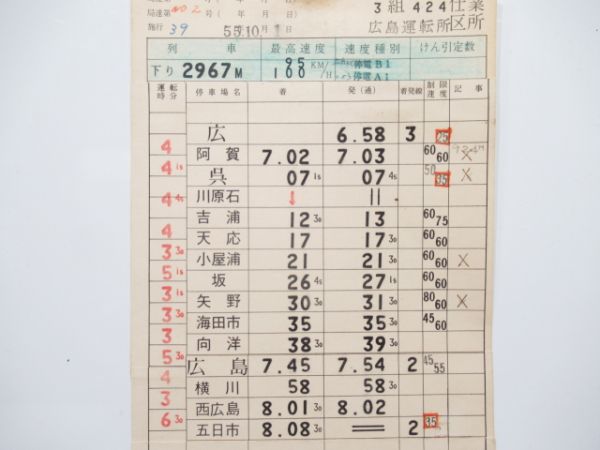 3 組 424 仕業
局達第 402 号 ( 年 月 日)
施行 39 55年10月1日 広島運転所 区所
列車 最高速度 速度種別 けん引定数
下り 2967M 95 100 KM/H 停電B1 停電A1
運転時分 停車場名 着 発(通) 着発線 制限速度 記事
広 6.58 3 25
4 阿賀 7.02 7.03 60 60 ×
4 1s 呉 07 1s 07 4s 50 35 ×
川原石 ↓ ||
4 4s 吉浦 12 30 13 60 75
4 天応 17 17 30 60 60
3 30 小屋浦 21 21 30 60 60 ×
5 1s 坂 26 4s 27 1s 60 60
3 1s 矢野 30 30 31 30 80 60 ×
3 30 海田市 35 35 30 45 60
3 向洋 38 30 39 30
5 30 広島 7.45 7.54 2 45 55
4 横川 58 58 30
3 西広島 8.01 30 8.02
6 30 五日市 8.08 30 2 35